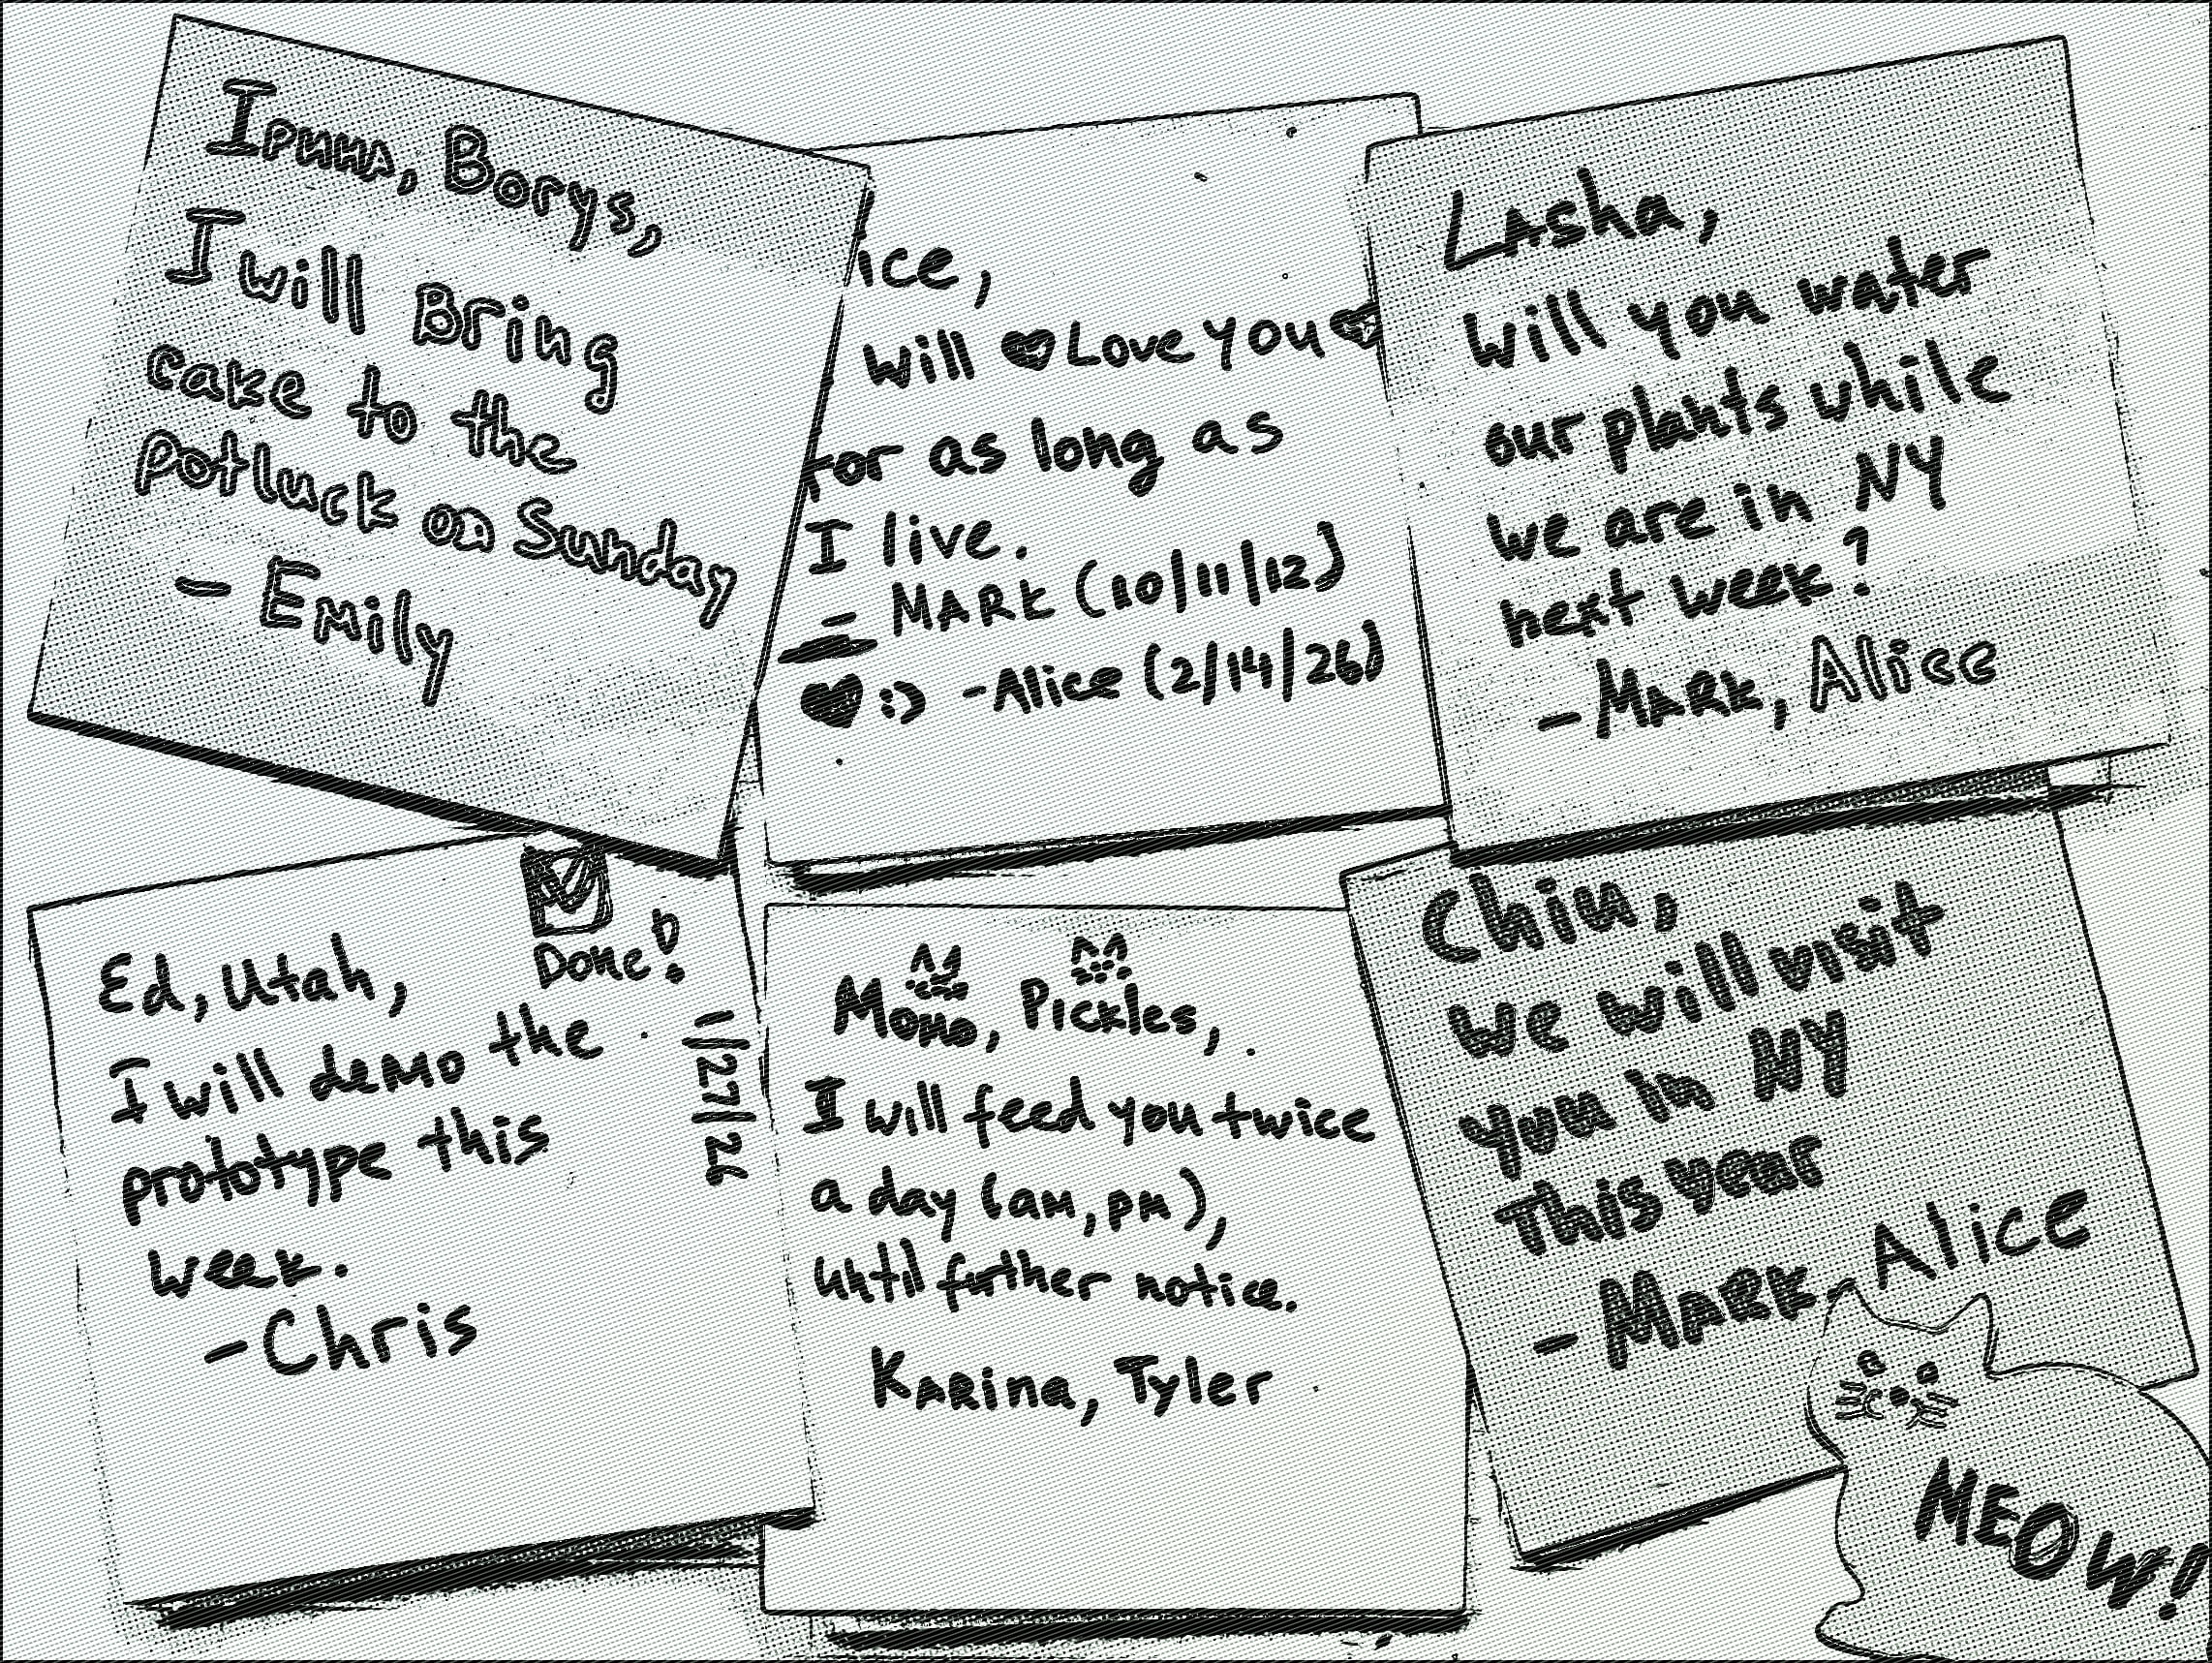 Ірина, Borys,
I will Bring
cake to the
potluck on Sunday
- Emily
ice,
will ♥ Love you ♥
for as long as
I live.
- MARK (10/11/12)
♥ :) - Alice (2/14/26)
LAsha,
will you water
our plants while
we are in NY
next week?
- MARK, Alice
Done!
Ed, Utah,
I will demo the
prototype this
week.
- Chris
1/27/26
Momo, Pickles,
I will feed you twice
a day (am, pm),
until further notice.
KARina, Tyler
Chiu,
we will visit
you in NY
This year
- MARK, Alice
MEOW!